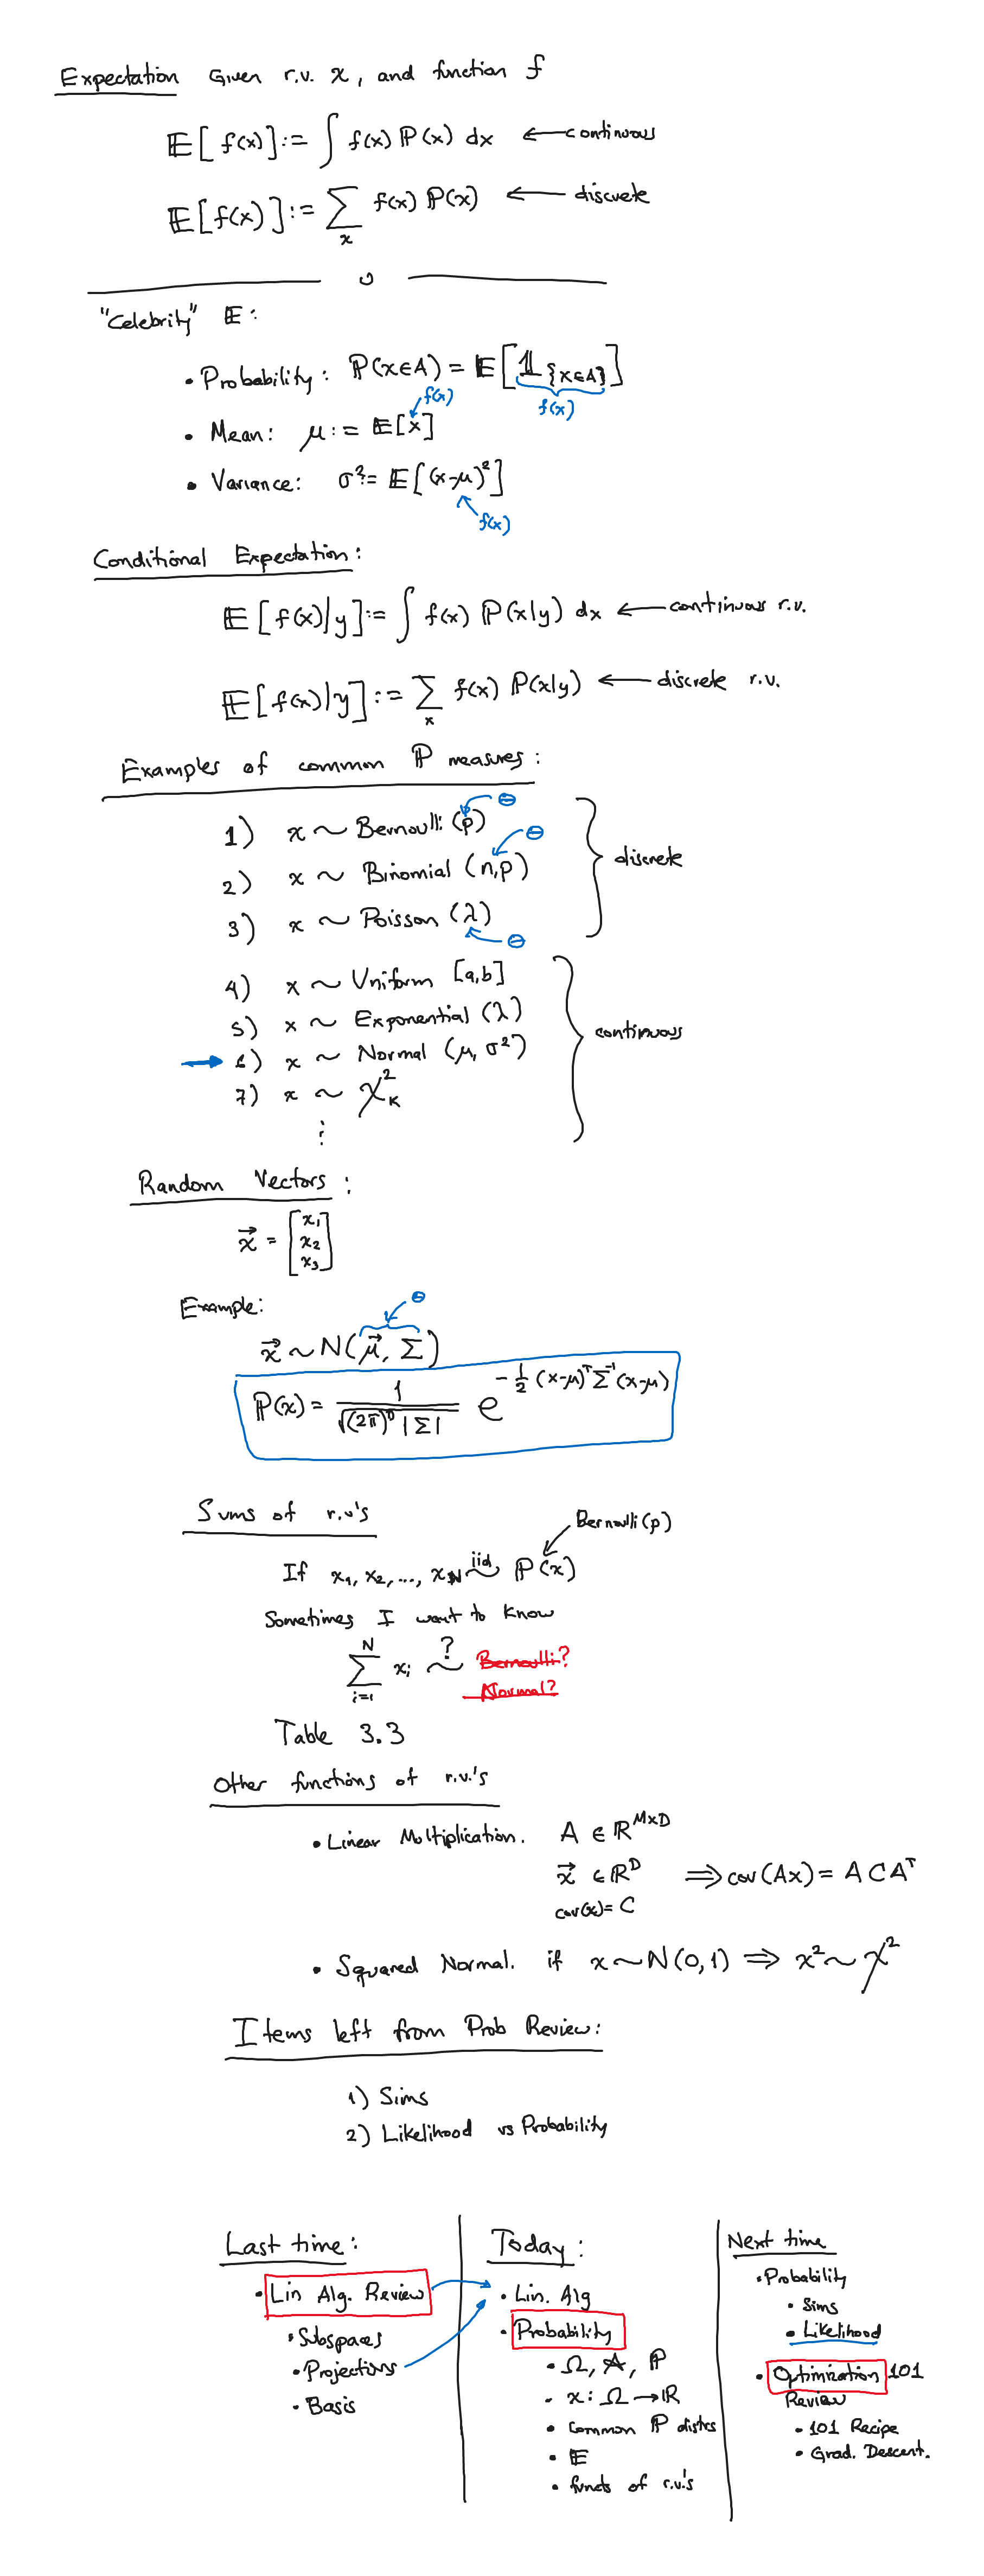 Expectation Given r.v. x, and function f
𝔼[f(x)] := ∫ f(x) ℙ(x) dx ← continuous
𝔼[f(x)] := ∑_x f(x) ℙ(x) ← discrete
"Celebrity" 𝔼:
• Probability: ℙ(x∈A) = 𝔼[𝟙_{x∈A}]
f(x)
f(x)
• Mean: μ := 𝔼[x]
• Variance: σ² := 𝔼[(x-μ)²]
f(x)
Conditional Expectation:
𝔼[f(x)|y] := ∫ f(x) ℙ(x|y) dx ← continuous r.v.
𝔼[f(x)|y] := ∑_x f(x) ℙ(x|y) ← discrete r.v.
Examples of common ℙ measures:
1) x ~ Bernoulli (p) θ
2) x ~ Binomial (n,p) θ
discrete
3) x ~ Poisson (λ) θ
4) x ~ Uniform [a,b]
5) x ~ Exponential (λ)
continuous
→ 6) x ~ Normal (μ, σ²)
7) x ~ χ²_K
⋮
Random Vectors:
x⃗ = [x₁ x₂ x₃]
Example: θ
x⃗ ~ N(μ⃗, Σ)
ℙ(x) = 1/√((2π)^D |Σ|) e^{-½ (x-μ)ᵀ Σ⁻¹ (x-μ)}
Sums of r.v's
Bernoulli(p)
If x₁, x₂, ..., x_N iid ~ ℙ(x)
Sometimes I want to know
∑_{i=1}^{N} x_i ~ ? Bernoulli?
Normal?
Table 3.3
Other functions of r.v.'s
• Linear Multiplication. A ∈ ℝ^{M×D}
x⃗ ∈ ℝ^D ⟹ cov(Ax) = A C Aᵀ
cov(x) = C
• Squared Normal. if x ~ N(0,1) ⟹ x² ~ χ²
Items left from Prob Review:
1) Sims
2) Likelihood vs Probability
Last time:
• Lin Alg. Review
• Subspaces
• Projections
• Basis
Today:
• Lin. Alg
• Probability
• Ω, 𝔸, ℙ
• x: Ω → ℝ
• common ℙ dists
• 𝔼
• functs of r.v.'s
Next time
• Probability
• Sims
• Likelihood
• Optimization 101
Review
• 101 Recipe
• Grad. Descent.